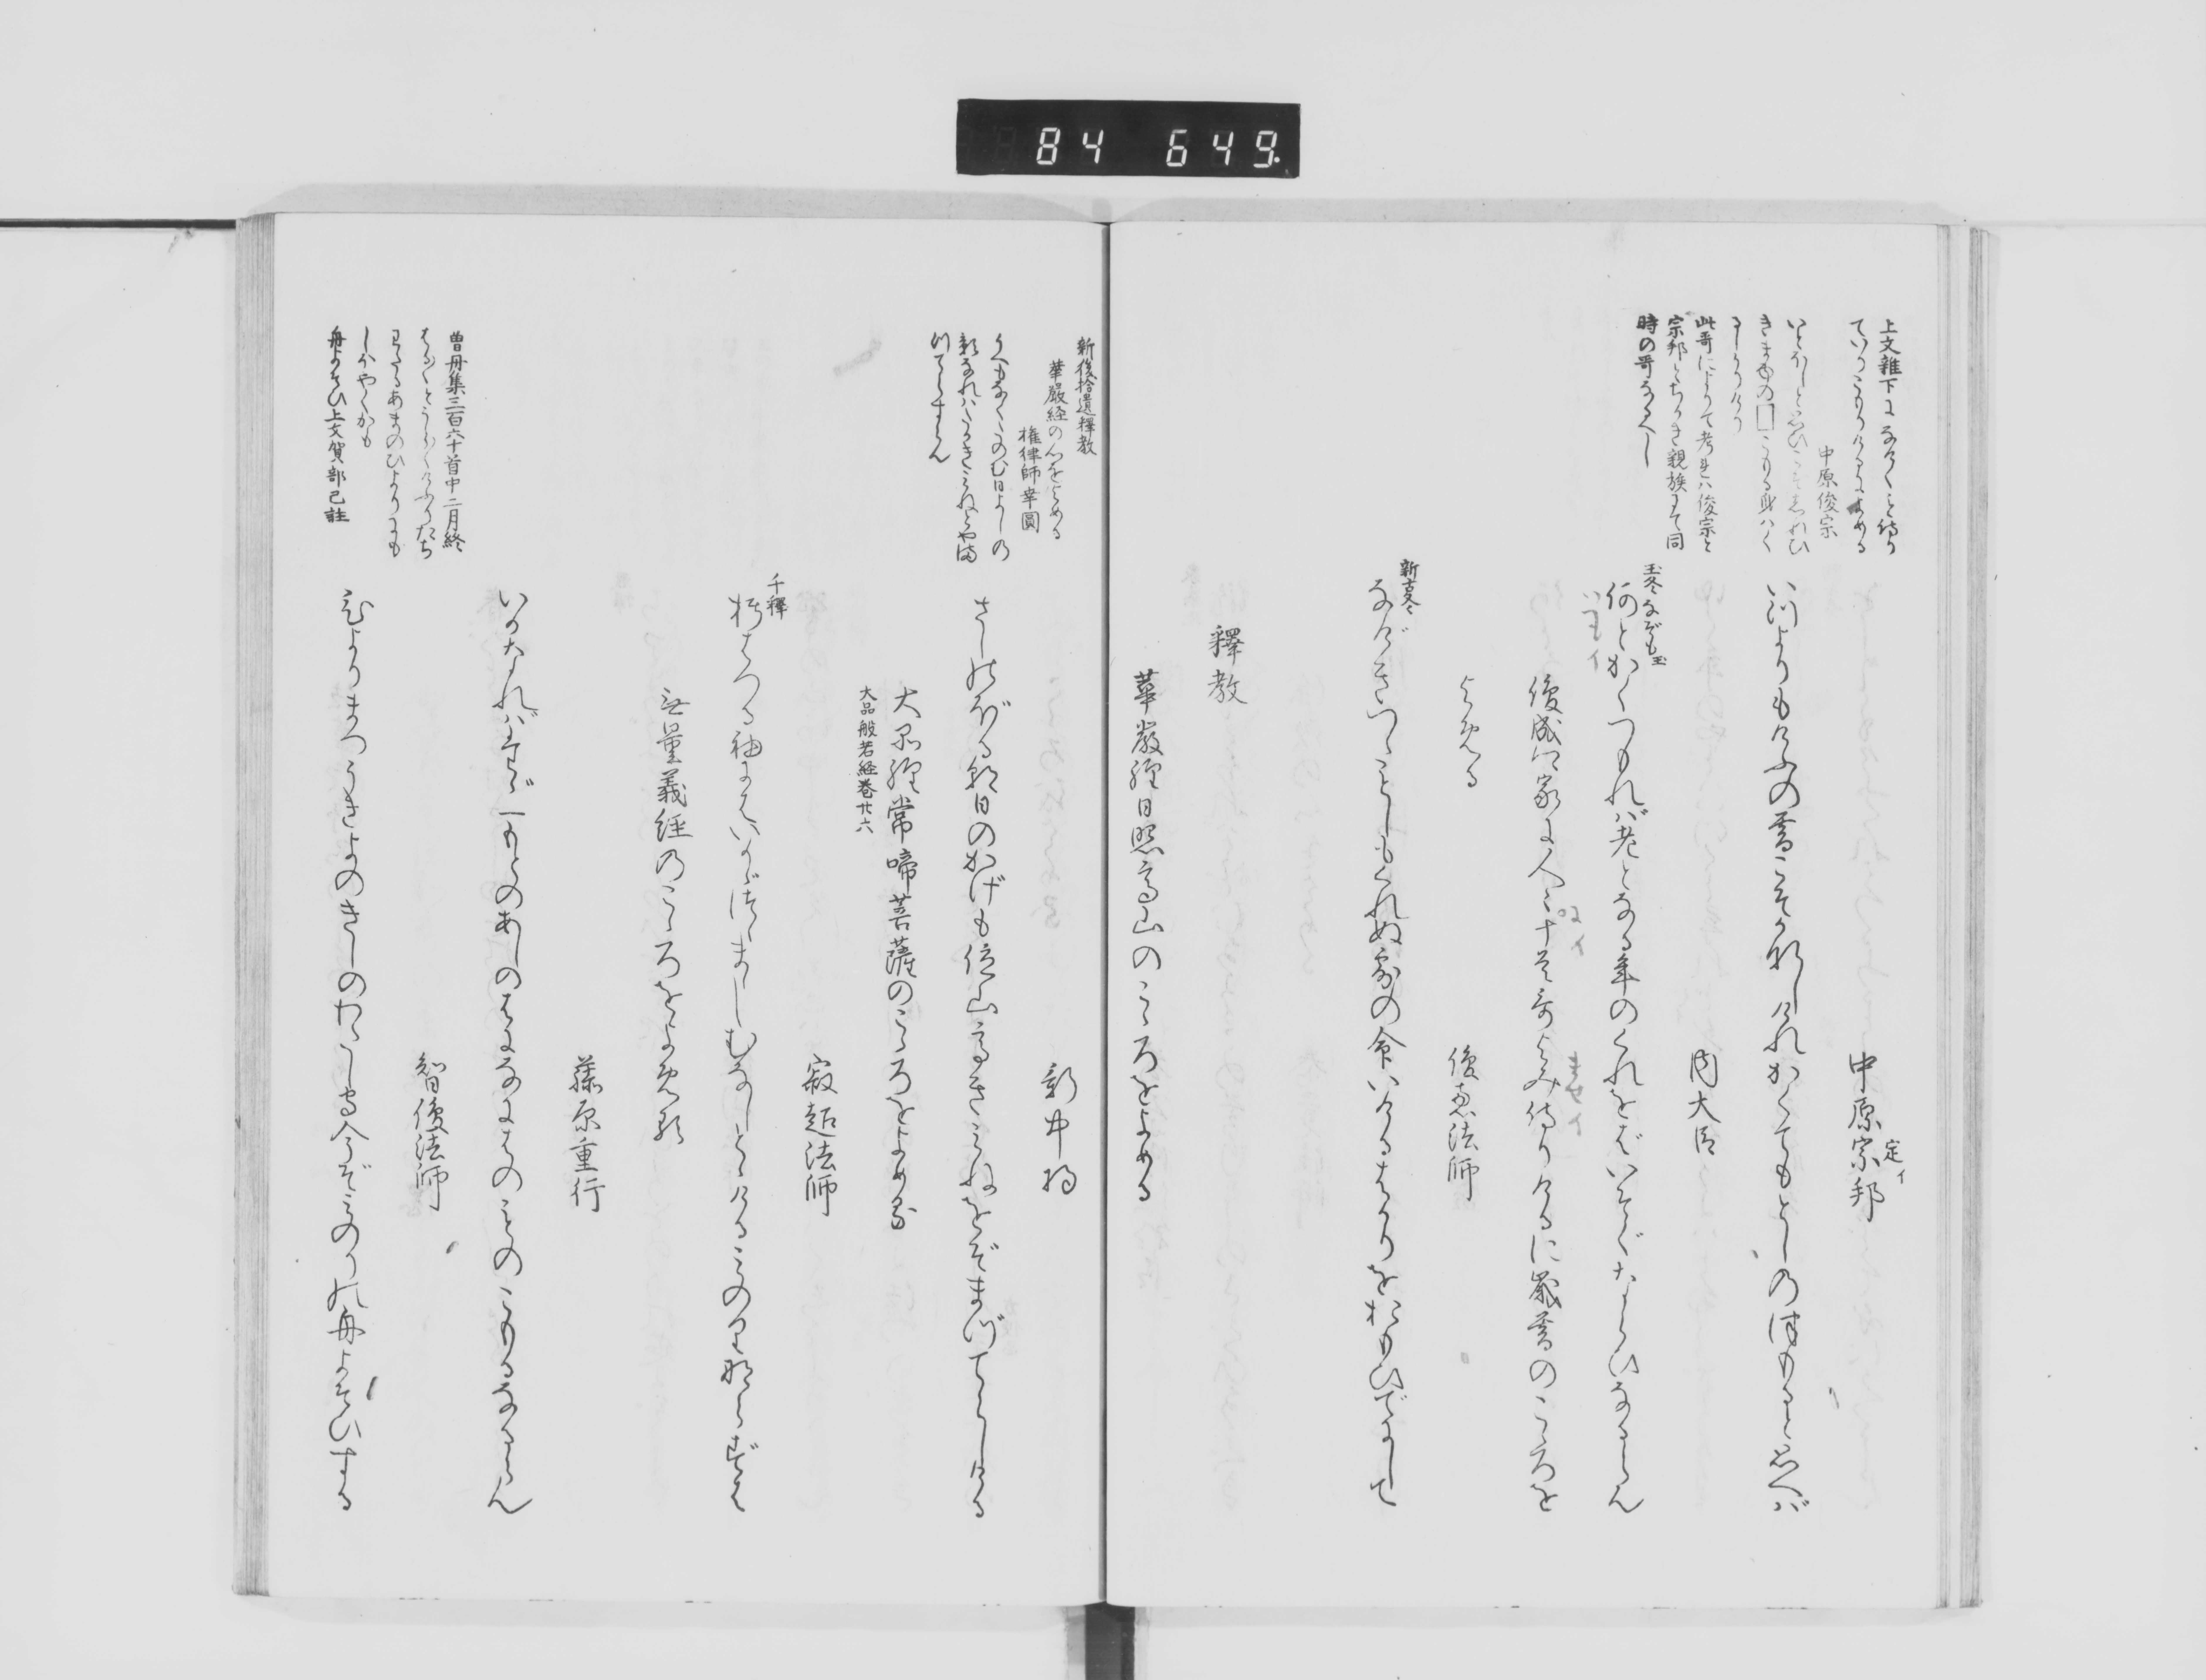 84 649.
上文雑下に
中原俊宗
此哥によりて考れハ俊宗と
宗邦とちかき親族にて同
時の哥なるへし
中原宗邦
定イ
いつよりもけふの雪こそかなしけれかくてもとしのつもると思へば
内大臣
玉冬なぞも玉
何とかくつもれば老となる年のくれをばいそぐならひなるらん
いつもイ
俊成卿家に人々十首哥よみ侍りけるに歳暮のこゝろを
よめる
俊恵法師
新古冬
なげきつゝことしもくれぬ露の命いけるばかりをおもひでにして
釋教
華嚴經日照高山のこゝろをよめる
新後拾遺釋教
華嚴経の心をよめる
権律師幸圓
新中将
さしのぼる朝日のかげも位山高きみねをぞまづてらしける
大品經常啼菩薩のこゝろをよめる
大品般若経巻廿六
寂超法師
千釋
朽はつる袖にはいかゞつゝまましむなしとゝけるみのりならずは
無量義経のこゝろをよめる
藤原重行
いかなればたゞ一もとのあしのはになにはのことのこもるなるらん
智俊法師
曽丹集三百六十首中二月終
しほやくかも
舟よそひ上文賀部已註
むよりまつうきよのきしのわたし守今ぞみのりの舟よそひする